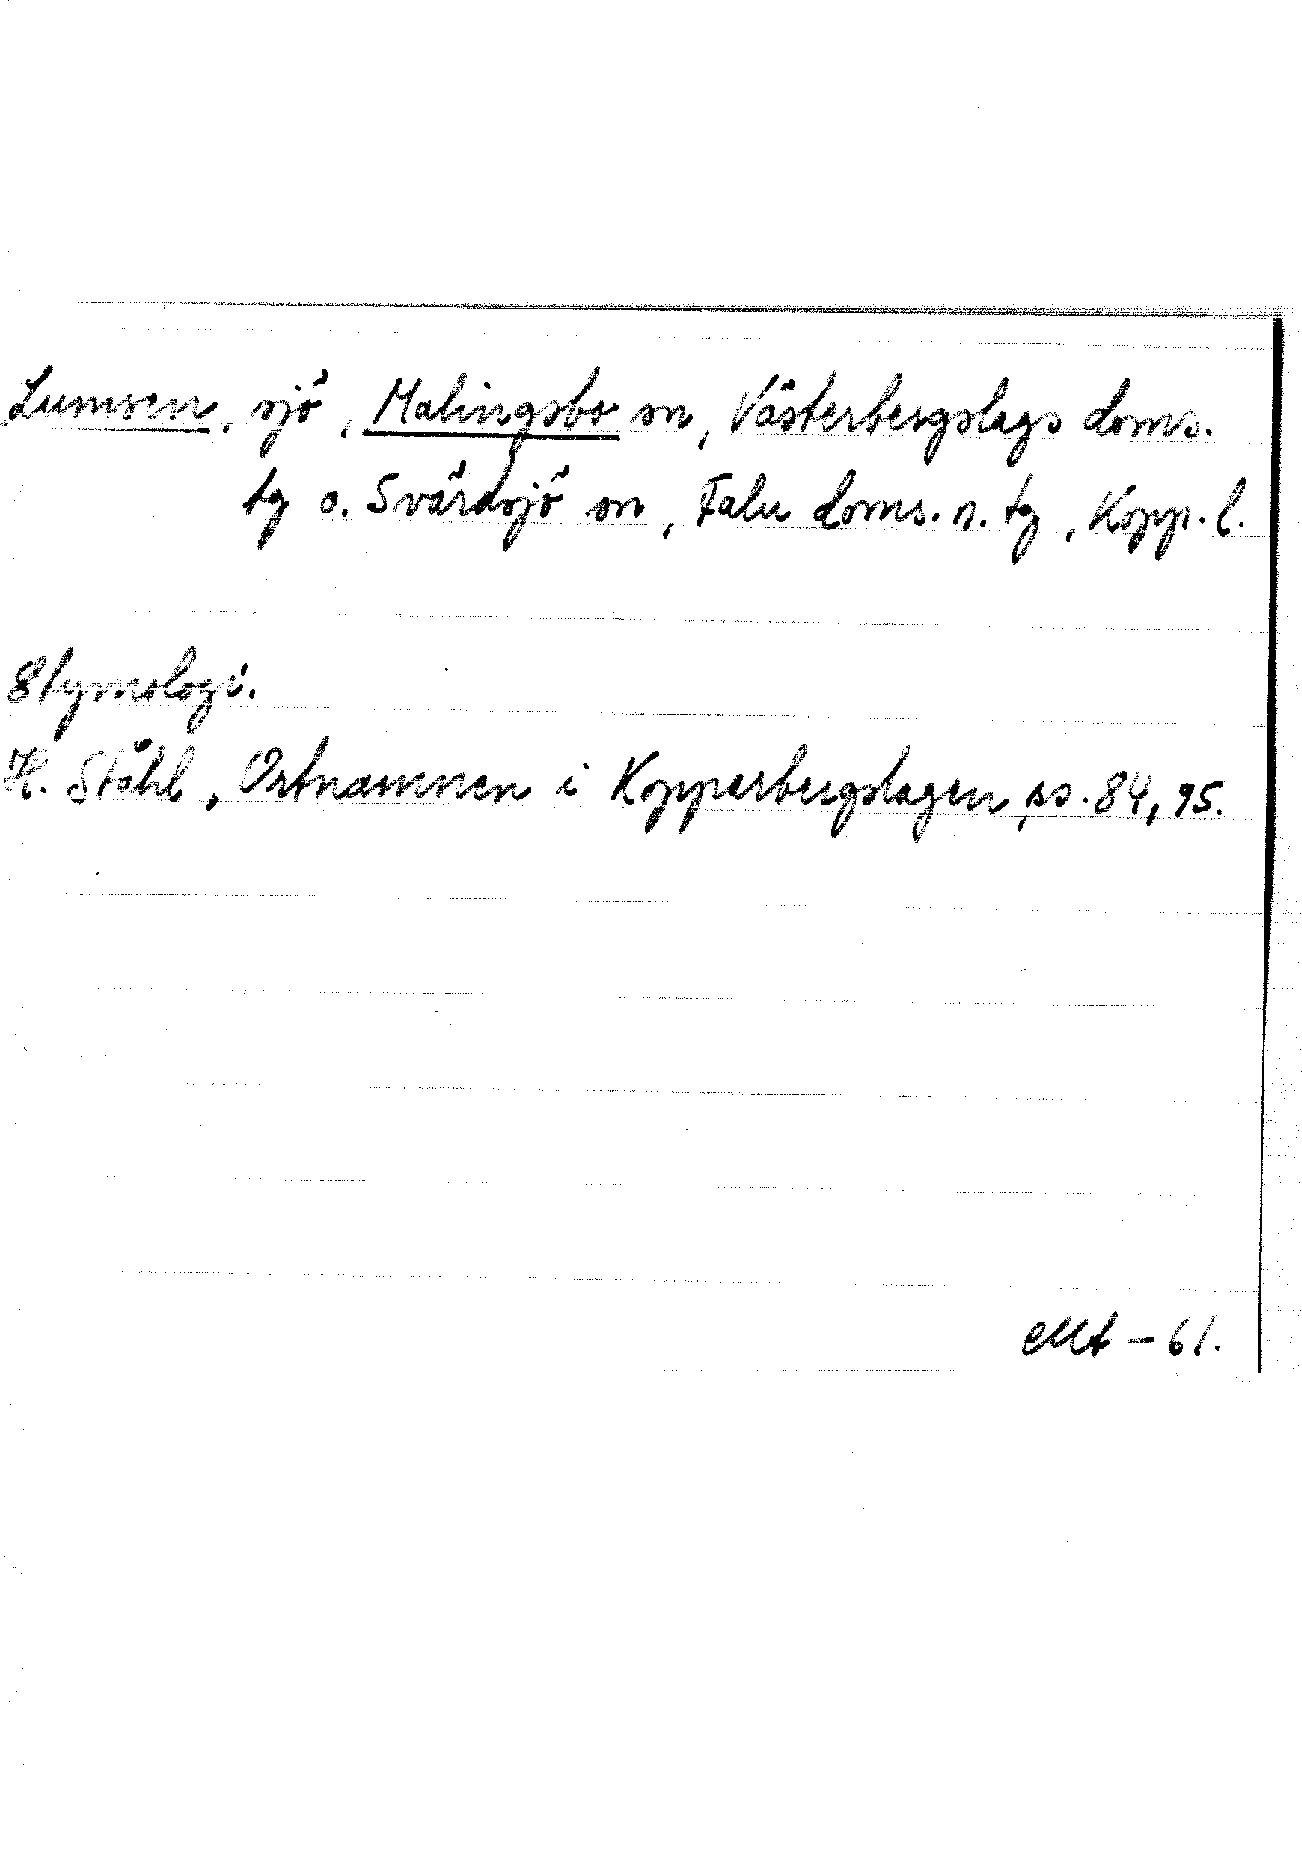 Lumsen, sjö, Malingsbo sn, Västerbergslags doms.
tg o. Svärdsjö sn, Falu doms. n. tg, Kopp. l.
Etymologi.
H. Ståhl, Ortnamnen i Kopparbergslagen, ss. 84, 95.
EMt – 61.